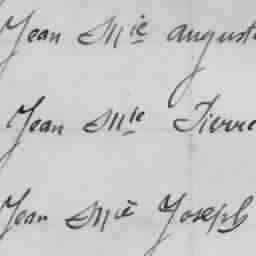 Jean Mie august
Jean Mie Pierre
Jean Mie Joseph